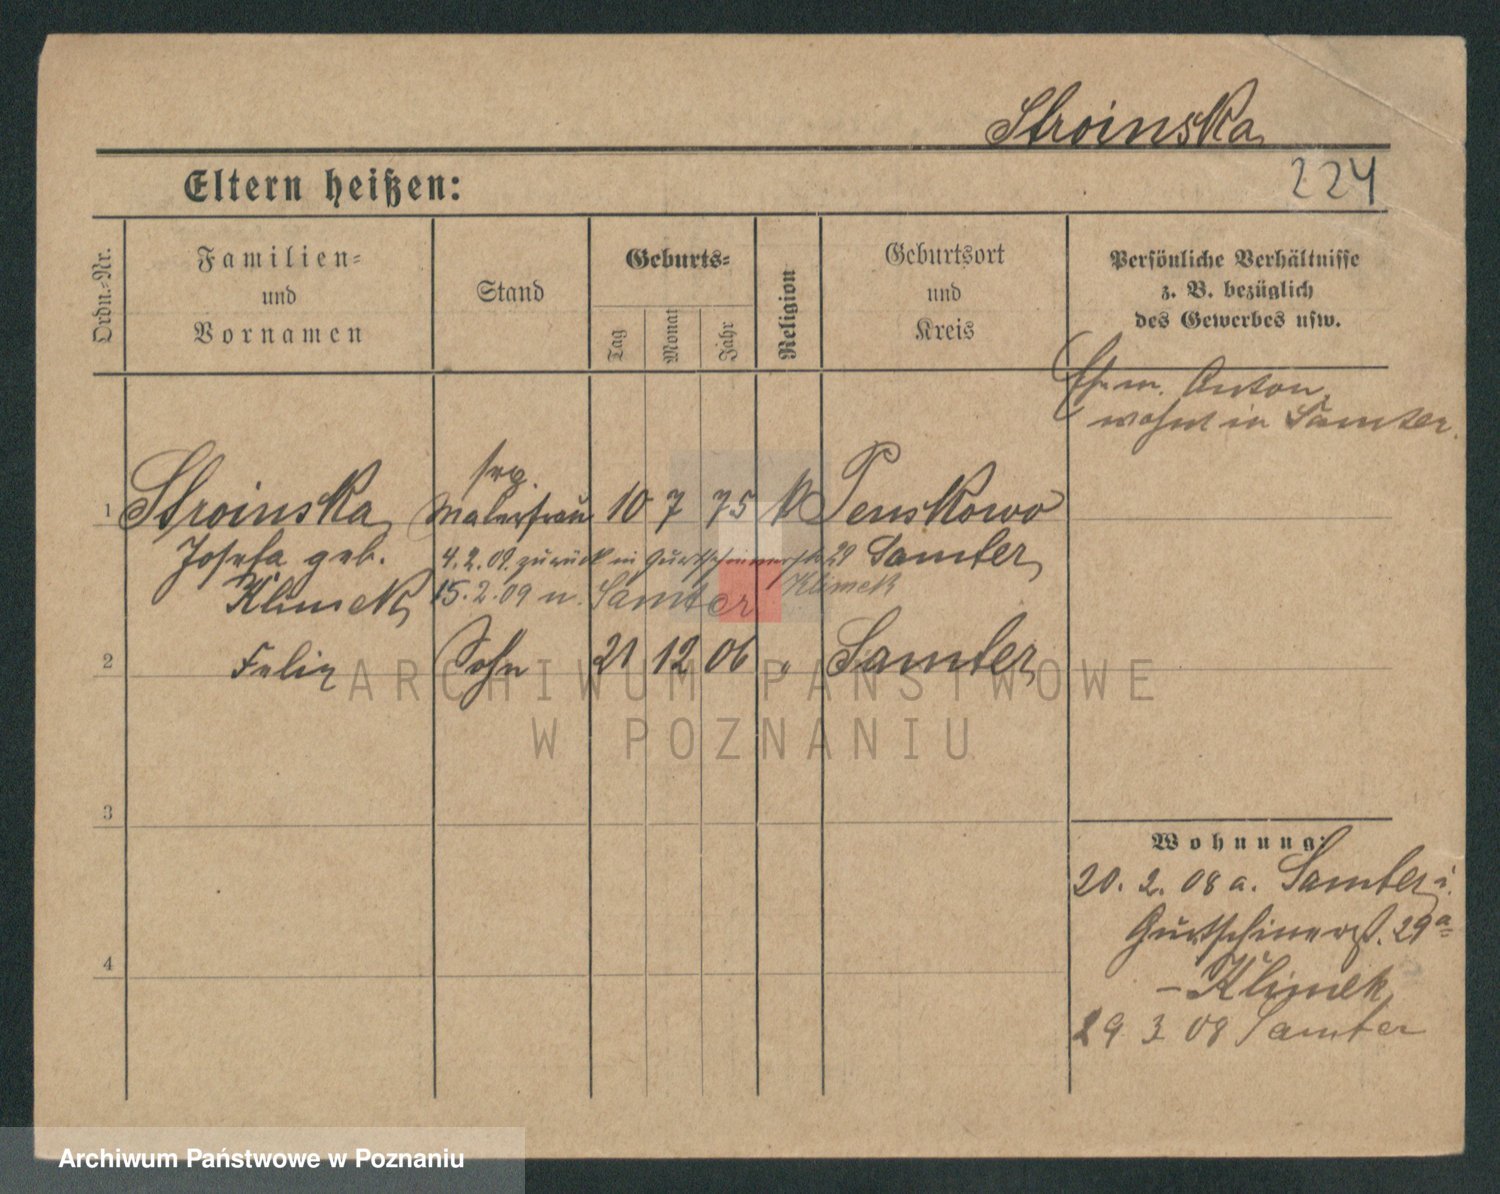 Stroinska
Eltern heißen:
224
Ordn.-Nr.
Familien-
und
Vornamen
Stand
Geburts-
Tag
Monat
Jahr
Religion
Geburtsort
und
Kreis
Persönliche Verhältnisse
z. B. bezüglich
des Gewerbes usw.
Ehem. Anton,
wohnt in Samter.
1
Stroinska
Josefa geb.
Klimek
sep.
Malerfrau
10 7 75 k
Penskowo
Samter
4.2.09. zurück in Gurtschinerstr 29
Klimek
15.2.09 n. Samter
2
Felix
Sohn
21 12 06 "
Samter
3
4
Wohnung:
20. 2. 08 a. Samter i.
Gurtschinerst. 29a
- Klimek
29 3 08 Samter
ARCHIWUM PAŃSTWOWE
W POZNANIU
Archiwum Państwowe w Poznaniu